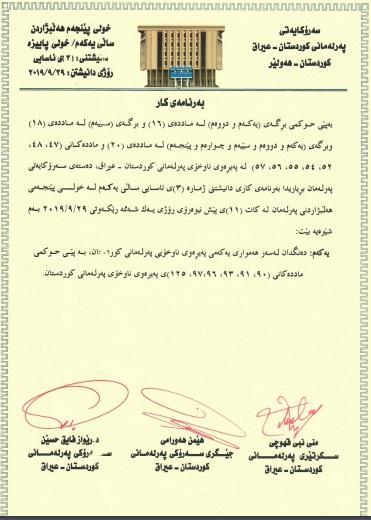 سەرۆکایەتی
پەرلەمانی کوردستان - عیراق
کوردستان - هەولێر
خولی پێنجەم هەڵبژاردن
ساڵی یەکەم / خولی پاییزە
دانیشتنی: (٣)ی ئاسایی
رۆژی دانیشتن: ٢٠١٩/٩/٢٩
بەرنامەی کار
بەپێی حوکمی بڕگەی (یەکەم و دووەم) لە ماددەی (١٦) و بڕگەی (سێیەم) لە ماددەی (١٨)
وبرگەی (یەکەم و دووەم و سێیەم و چوارەم و پێنجەم) لە ماددەی (٢٠) و ماددەکانی (٤٧، ٤٨،
٥٢، ٥٤، ٥٥، ٥٦، ٥٧) لە پەیڕەوی ناوخۆی پەرلەمانی کوردستان - عیراق، دەستەی سەرۆکایەتی
پەرلەمان بڕیاریدا بەرنامەی کاری دانیشتنی ژمارە (٣)ی ئاسایی ساڵی یەکەم لە خولی پێنجەمی
هەڵبژاردنی پەرلەمان لە کات (١١)ی پێش نیوەڕۆی رۆژی یەك شەممە رێکەوتی ٢٠١٩/٩/٢٩ بەم
شێوەیە بێت:
یەکەم: دەنگدان لەسەر هەمواری یەکەمی پەیرەوی ناوخۆیی پەرلەمانی کوردستان، بە پێی حوکمی
ماددەکانی (٩٠، ٩١، ٩٣، ٩٦، ٩٧، ١٢٥)ی پەیرەوی ناوخۆی پەرلەمانی کوردستان.
منی نبی قهوچی
سکرتێری پەرلەمانی
کوردستان - عیراق
هێمن هەورامی
جێگری سەرۆکی پەرلەمانی
کوردستان - عیراق
د.رێواز فایق حسێن
سەرۆکی پەرلەمانی
کوردستان - عیراق